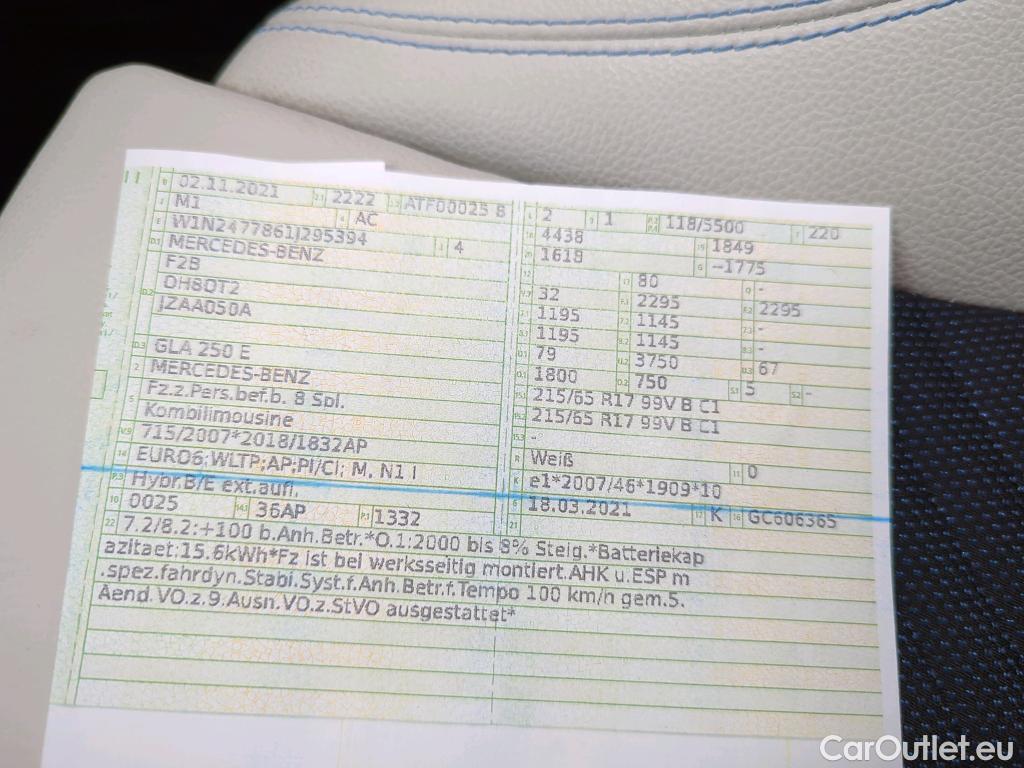 B 02.11.2021 2.1 2222 2.2 ATF00025 8
J M1 4 AC
E W1N2477861J295394 3 4
D.1 MERCEDES-BENZ
F2B
D.2 OH8OT2
JZAA050A
D.3 GLA 250 E
2 MERCEDES-BENZ
5 Fz.z.Pers.bef.b. 8 Spl.
Kombilimousine
V.9 715/2007*2018/1832AP
14 EURO6;WLTP;AP;PI/CI; M, N1 I
P.3 Hybr.B/E ext.aufl.
10 0025 14.1 36AP P.1 1332
L 2 9 1 P.2 P.4 118/5500 T 220
18 4438 19 1849
20 1618 G —1775
12 - 13 80 Q -
V.7 32 F.1 2295 F.2 2295
7.1 1195 7.2 1145 7.3 -
8.1 1195 8.2 1145 8.3 -
U.1 79 U.2 3750 U.3 67
O.1 1800 O.2 750 S.1 5 S.2 -
15.1 215/65 R17 99V B C1
15.2 215/65 R17 99V B C1
15.3 -
R Weiß 11 0
K e1*2007/46*1909*10
6 18.03.2021 17 K 16 GC606365
21
22 7.2/8.2:+100 b.Anh.Betr.*O.1:2000 bis 8% Steig.*Batteriekap
azitaet:15.6kWh*Fz ist bei werksseitig montiert.AHK u.ESP m
.spez.fahrdyn.Stabi.Syst.f.Anh.Betr.f.Tempo 100 km/h gem.5.
Aend.VO.z.9.Ausn.VO.z.StVO ausgestattet*
CarOutlet.eu